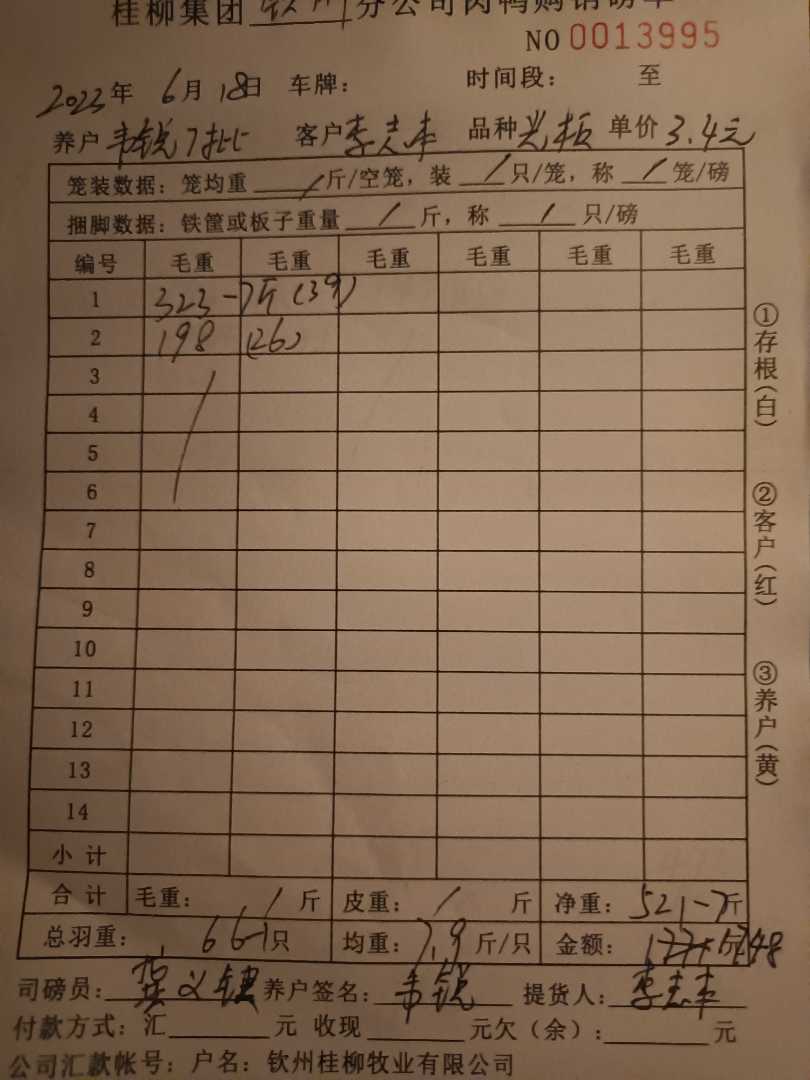 桂柳集团 钦州 分公司肉鸭购销磅单
NO 0013995
2023年 6月 18日 车牌： 时间段： 至
养户 韦锐7批 客户 李志丰 品种 光板 单价 3.4元
笼装数据：笼均重 / 斤/空笼，装 / 只/笼，称 / 笼/磅
捆脚数据：铁筐或板子重量 / 斤，称 / 只/磅
编号 毛重 毛重 毛重 毛重 毛重 毛重
1 323-7斤(39)
2 198 (26)
3
4
5
6
7
8
9
10
11
12
13
14
小计
合计 毛重： / 斤 皮重： / 斤 净重： 521-7斤
总羽重： 只 均重： 7.9 斤/只 金额：
司磅员： 养户签名：韦锐 提货人：李志丰
付款方式：汇 元 收现 元欠（余）： 元
公司汇款帐号：户名：钦州桂柳牧业有限公司
①存根（白）
②客户（红）
③养户（黄）